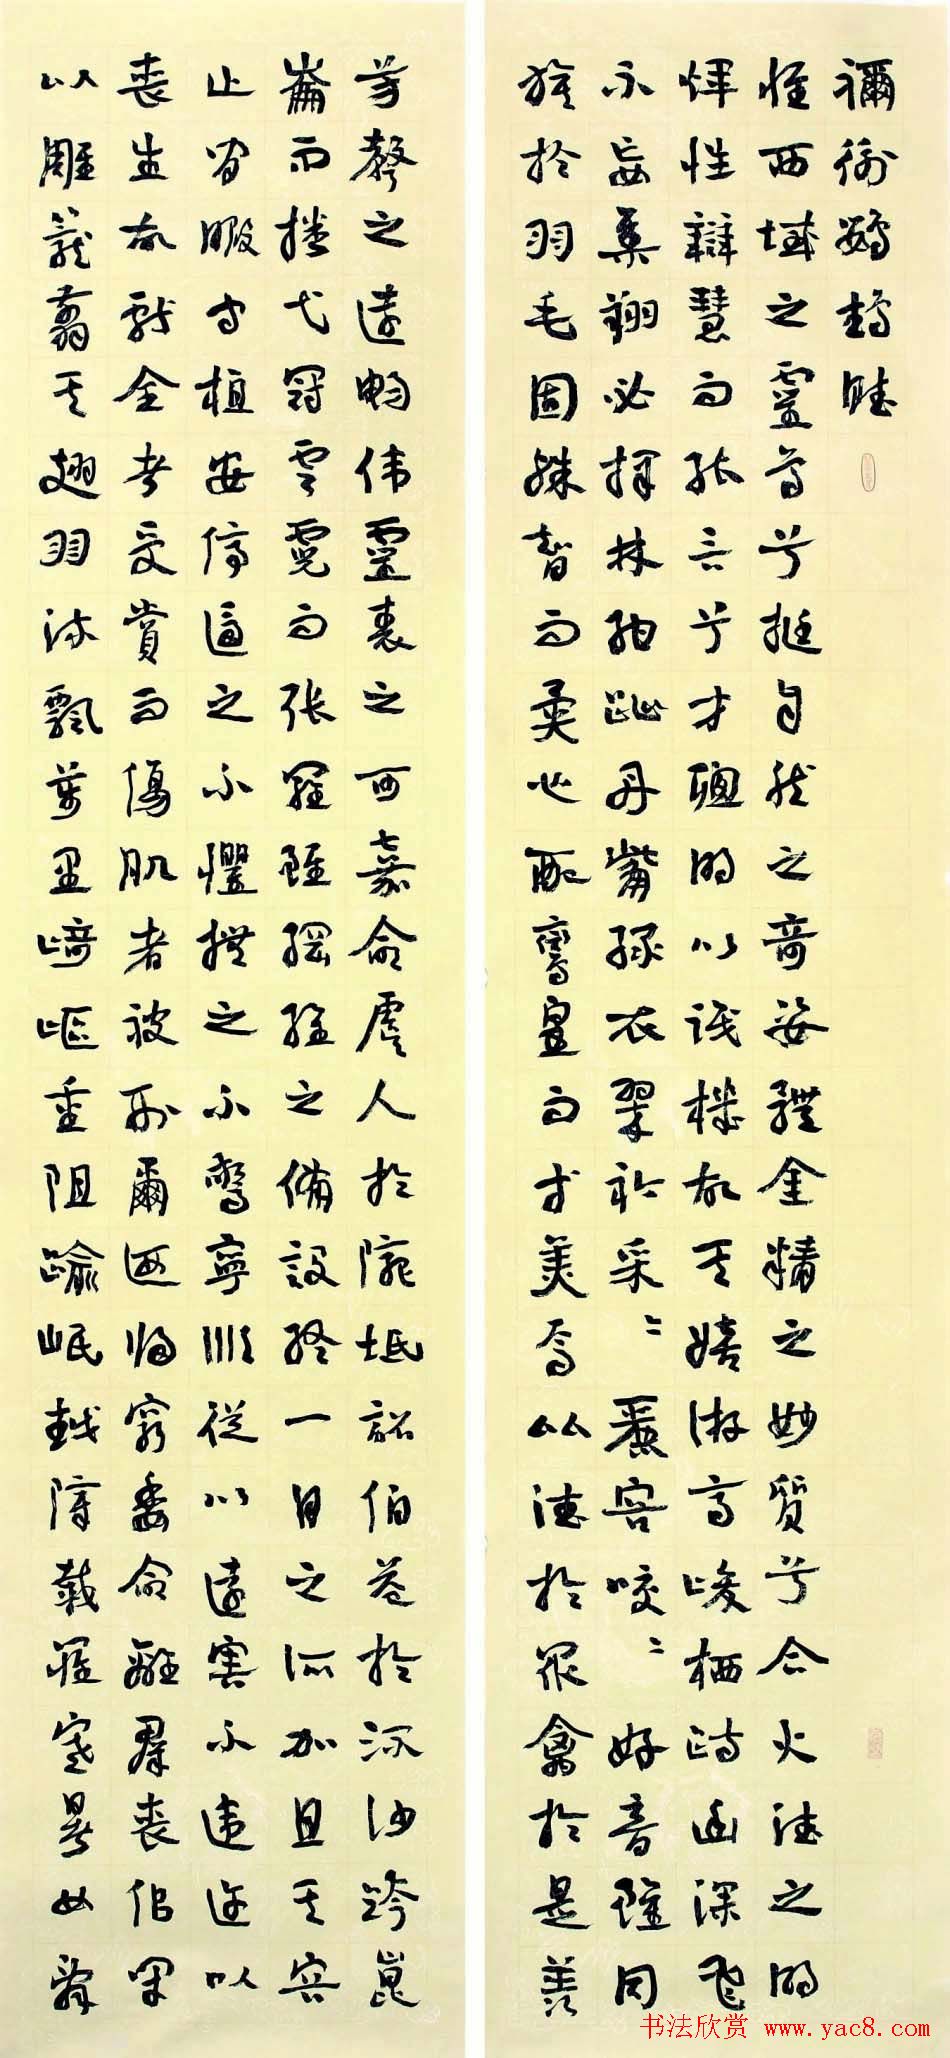 禰衡鸚鵡賦
惟西域之靈鳥兮挺自然之奇姿體金精之妙質兮合火德之明
煇性辯慧而能言兮才聰明以識機故其嬉游高峻栖跱幽深飛
不妄集翔必擇林紺趾丹觜綠衣翠衿采〻麗容咬〻好音雖同
族於羽毛固殊智而異心配鸞皇而等美焉比德於眾禽於是羨
芳聲之遠暢偉靈表之可嘉命虞人於隴坻詔伯益於流沙跨崑
崙而播弋冠雲霓而張羅雖綱維之備設終一目之所加且其容
止閑暇守植安停逼之不懼撫之不驚寧順從以遠害不違迕以
喪生故獻全者受賞而傷肌者被刑爾迺歸窮委命離群喪侶閉
以雕籠翦其翅羽流飄萬里崎嶇重阻踰岷越障載罹寒暑女辭
书法欣赏 www.yac8.com